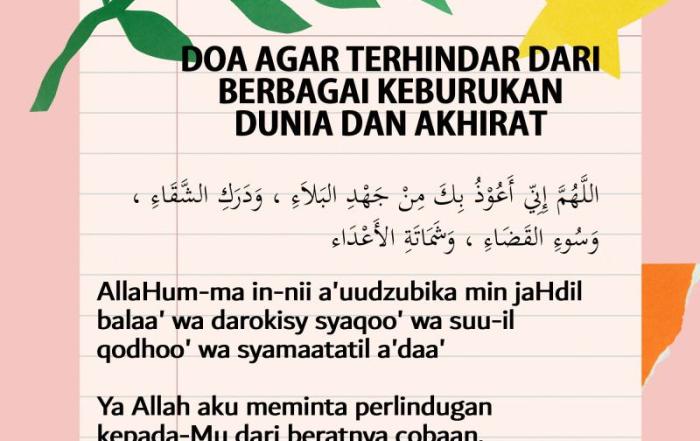 DOA AGAR TERHINDAR DARI
BERBAGAI KEBURUKAN
DUNIA DAN AKHIRAT
اللَّهُمَّ إِنِّي أَعُوْذُ بِكَ مِنْ جَهْدِ البَلاَءِ ، وَدَرَكِ الشَّقَاءِ ،
وَسُوءِ القَضَاءِ ، وَشَمَاتَةِ الأَعْدَاء
AllaHum-ma in-nii a'uudzubika min jaHdil
balaa' wa darokisy syaqoo' wa suu-il
qodhoo' wa syamaatatil a'daa'
Ya Allah aku meminta perlindugan
kepada-Mu dari beratnya cobaan,